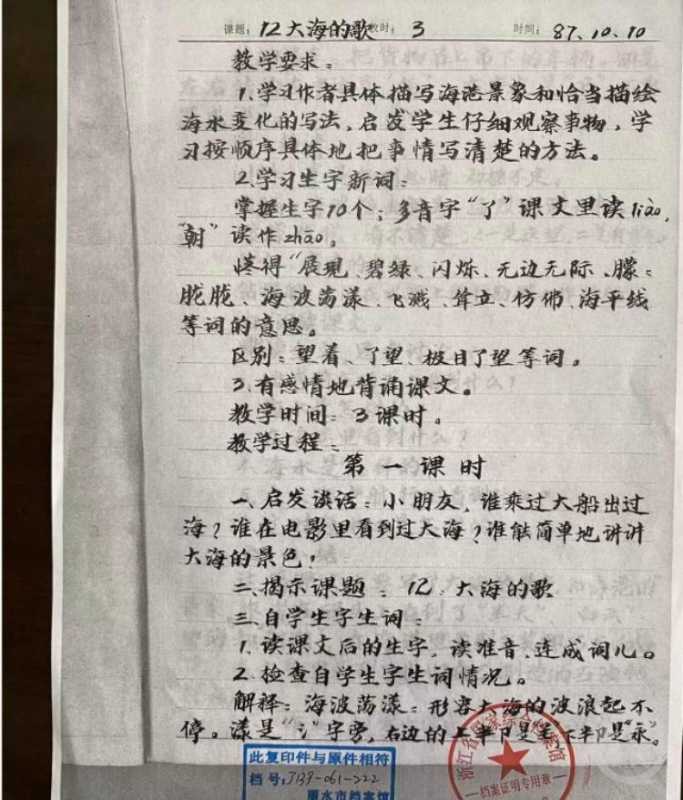 课题：12大海的歌 教时：3 时间：87.10.10
教学要求。
1.学习作者具体描写海港景象和恰当描绘
海水变化的写法，启发学生仔细观察事物，学
习按顺序具体地把事情写清楚的方法。
2.学习生字新词：
掌握生字10个；多音字“了”课文里读liào，
“朝”读作zhāo。
懂得“展现、碧绿、闪烁、无边无际、朦：
胧胧、海波荡漾、飞溅、耸立、仿佛、海平线
等词的意思。
区别：望着、了望、极目了望等词。
3.有感情地背诵课文。
教学时间：3课时。
教学过程：
第一课时
一、启发谈话：小朋友，谁乘过大船出过
海？谁在电影里看到过大海？谁能简单地讲讲
大海的景色！
二、揭示课题：12 大海的歌
三、自学生字生词：
1.读课文后的生字，读准音、连成词儿。
2.检查自学生字生词情况。
解释：海波荡漾：形容大海的波浪起不
停。漾是“氵”字旁，右边的上半部是“羊”下半部是“永”。
此复印件与原件相符
档号：J139-061-222
丽水市档案馆
档案证明专用章